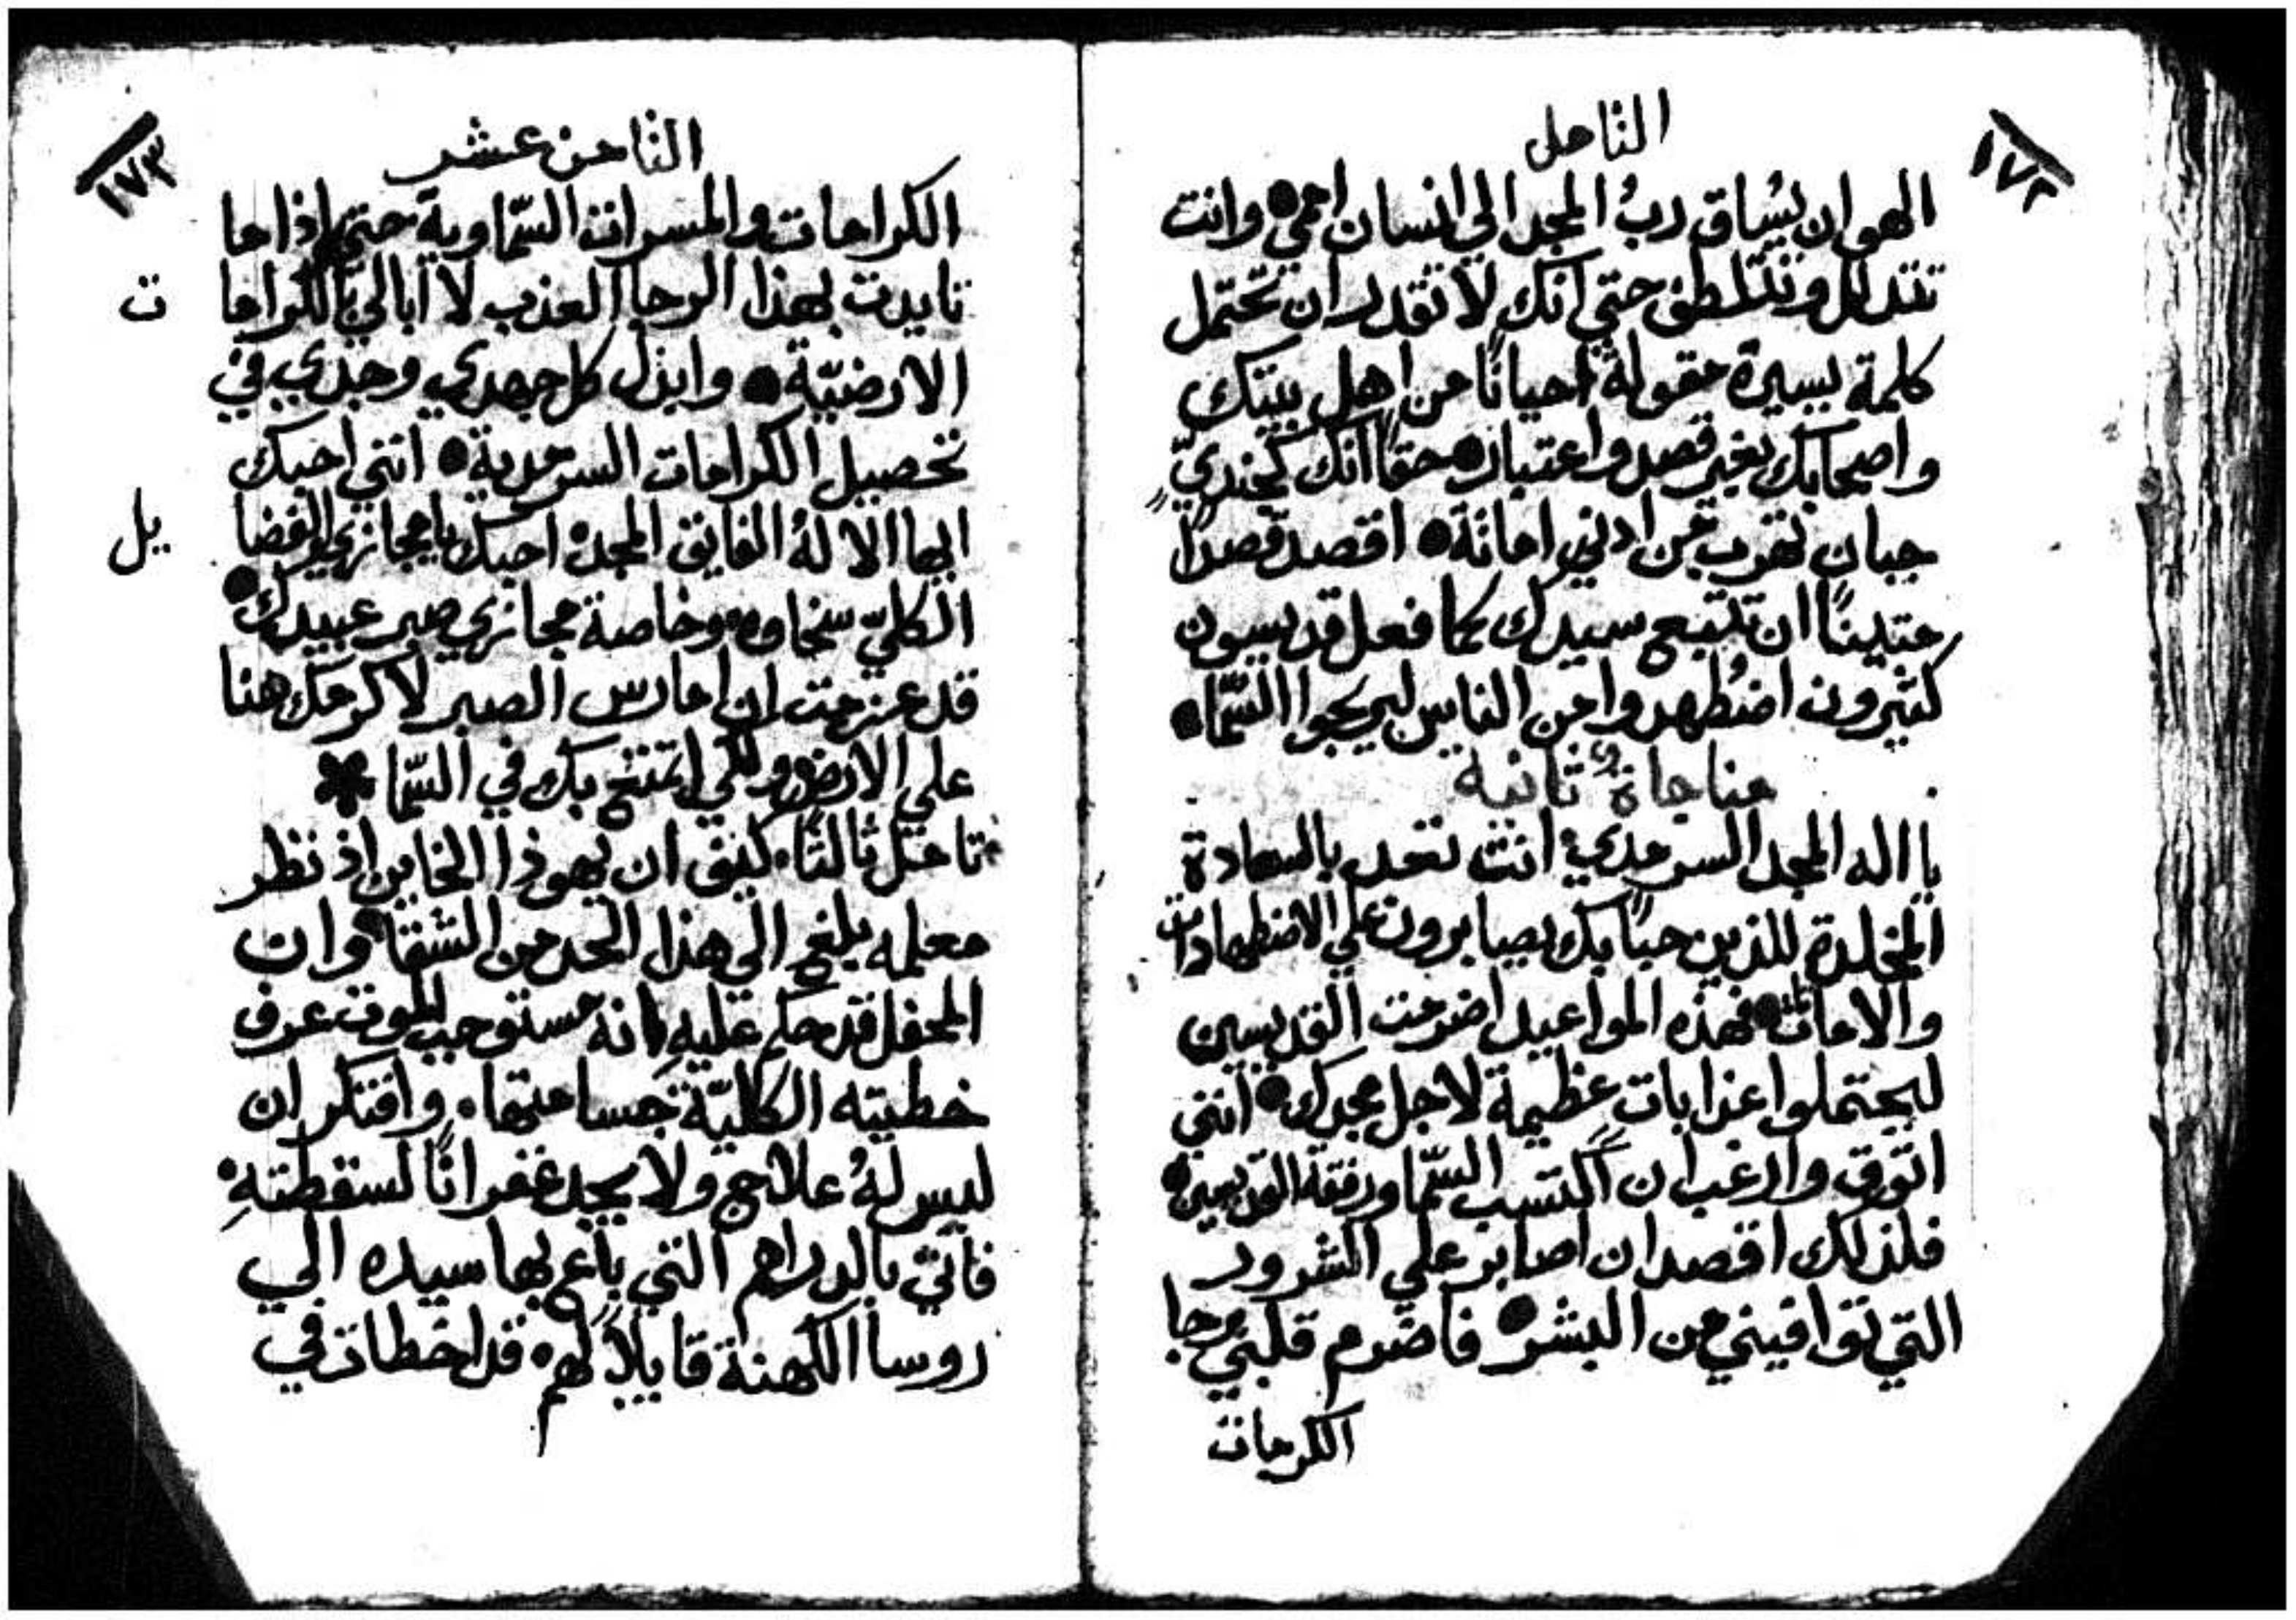 ١٧٢
التامل
الهوان يُساق ربُ المجد الي انسان اممي وانت
تتدلل وتتلطف حتي انك لا تقدر ان تحتمل
كلمة يسيرة مقولة احيانًا من اهل بيتك
واصحابك بغير قصد واعتبار حقًا انك كجنديّ
جبان تهرب من ادني اهانة اقصد قصدًا
متينًا ان تتبع سيدك كما فعل قديسون
كثيرون اضطُهدوا من الناس ليربحوا السّما
مناجاة ثانية
يا اله المجد السرمدي انت تعد بالسعادة
المخلدة للذين حبًا بك يصابرون علي الاضطهادات
والاهانات فهذه المواعيد اضرمت القديسين
ليحتملوا عذابات عظيمة لاجل مجدك انني
اتوق وارغب ان اكتسب السّما ورفقة القديسين
فلذلك اقصد ان اصابر علي الشرور
التي توافيني من البشر فاضرم قلبي برجا
الكرمات
١٧٣
الثامن عشر
الكرامات والمسرات السّماوية حتي اذا ما
تايدت بهذا الرجا العذب لا ابالي بالكراما
ت
الارضيّة وابذل كل جهدي وجدي في
تحصيل الكرامات السرمدية انني احبك
ايها الاله الفايق المجد احبك يا مجازي الفضا
يل
الكليّ سخاوه وخاصة مجازي صبر عبيدك
قد عزمت ان امارس الصبر لاكرمك هنا
علي الارض ولكي اتمتع بك في السّما
تامل ثالثًا كيف ان يهوذا الخاين اذ نظر
معلمه يلغي الي هذا الحد من الشقا وان
المحفل قد حكم عليه بانه مستوجب الموت عرف
خطيته الكليّة جسامتها وافتكر ان
ليس لهُ علاج ولا يجد غفرانًا لسقطتهِ
فاتي بالدراهم التي باع بها سيده الي
روسا الكهنة قايلاً لهم قد اخطات في